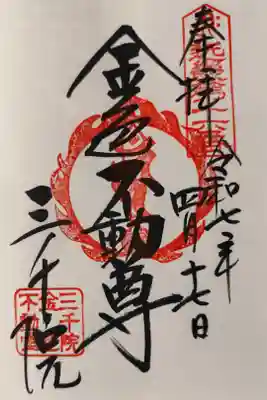 奉拝
令和七年
四月十七日
金色不動尊
三千院
三千院